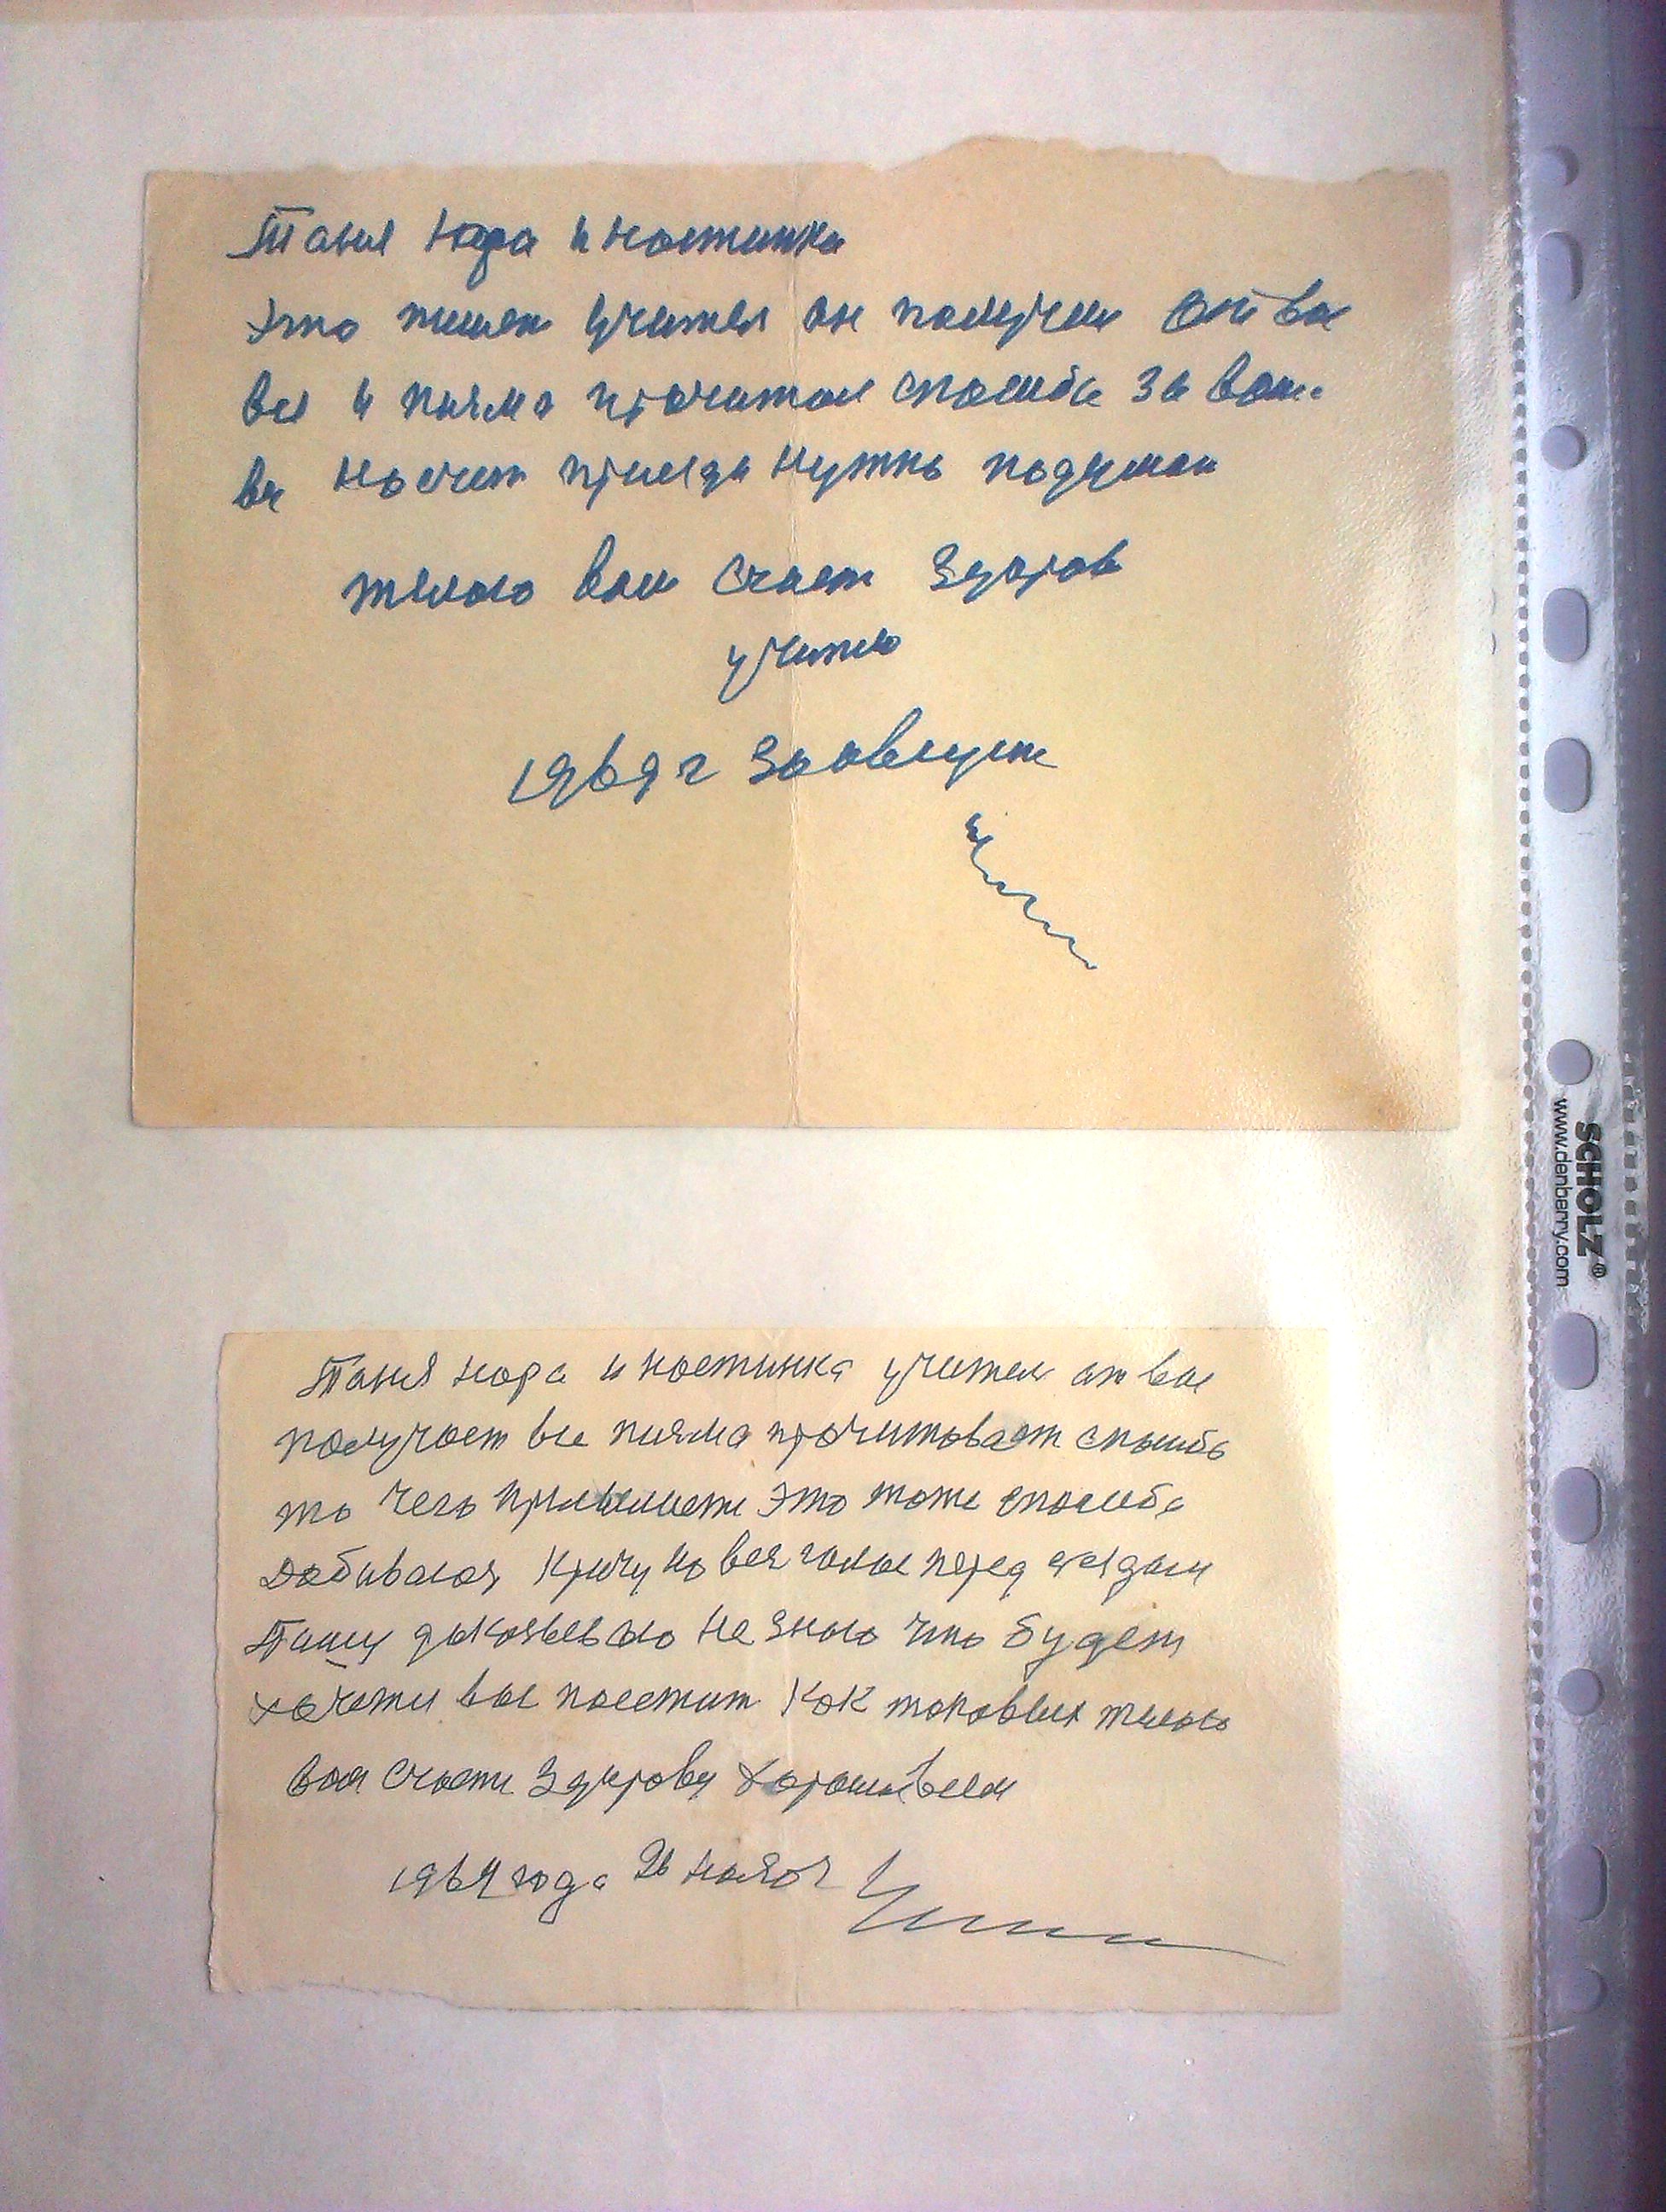 Таня Нора и ностинка
это пишет учител он получил от вас
все и писма прочитал спосиба за вам.
вы Носчет приезда нужно подумат
желаю вам счаст Здоров
учител
1969 г 30 август
Таня нора и ностинка учител от вас
получает все писма прочитовает спосиба
то чего присылаете это тоже спосиба
Добиваюс Кричу во вес голос перед сездам
Пашу доказываю Не знаю что будет
хочети вас посетит Как таковых желаю
вам счасти Здоровя хорошивсем
1969 года 26 ноябр
SCHOLZ®
www.denberry.com